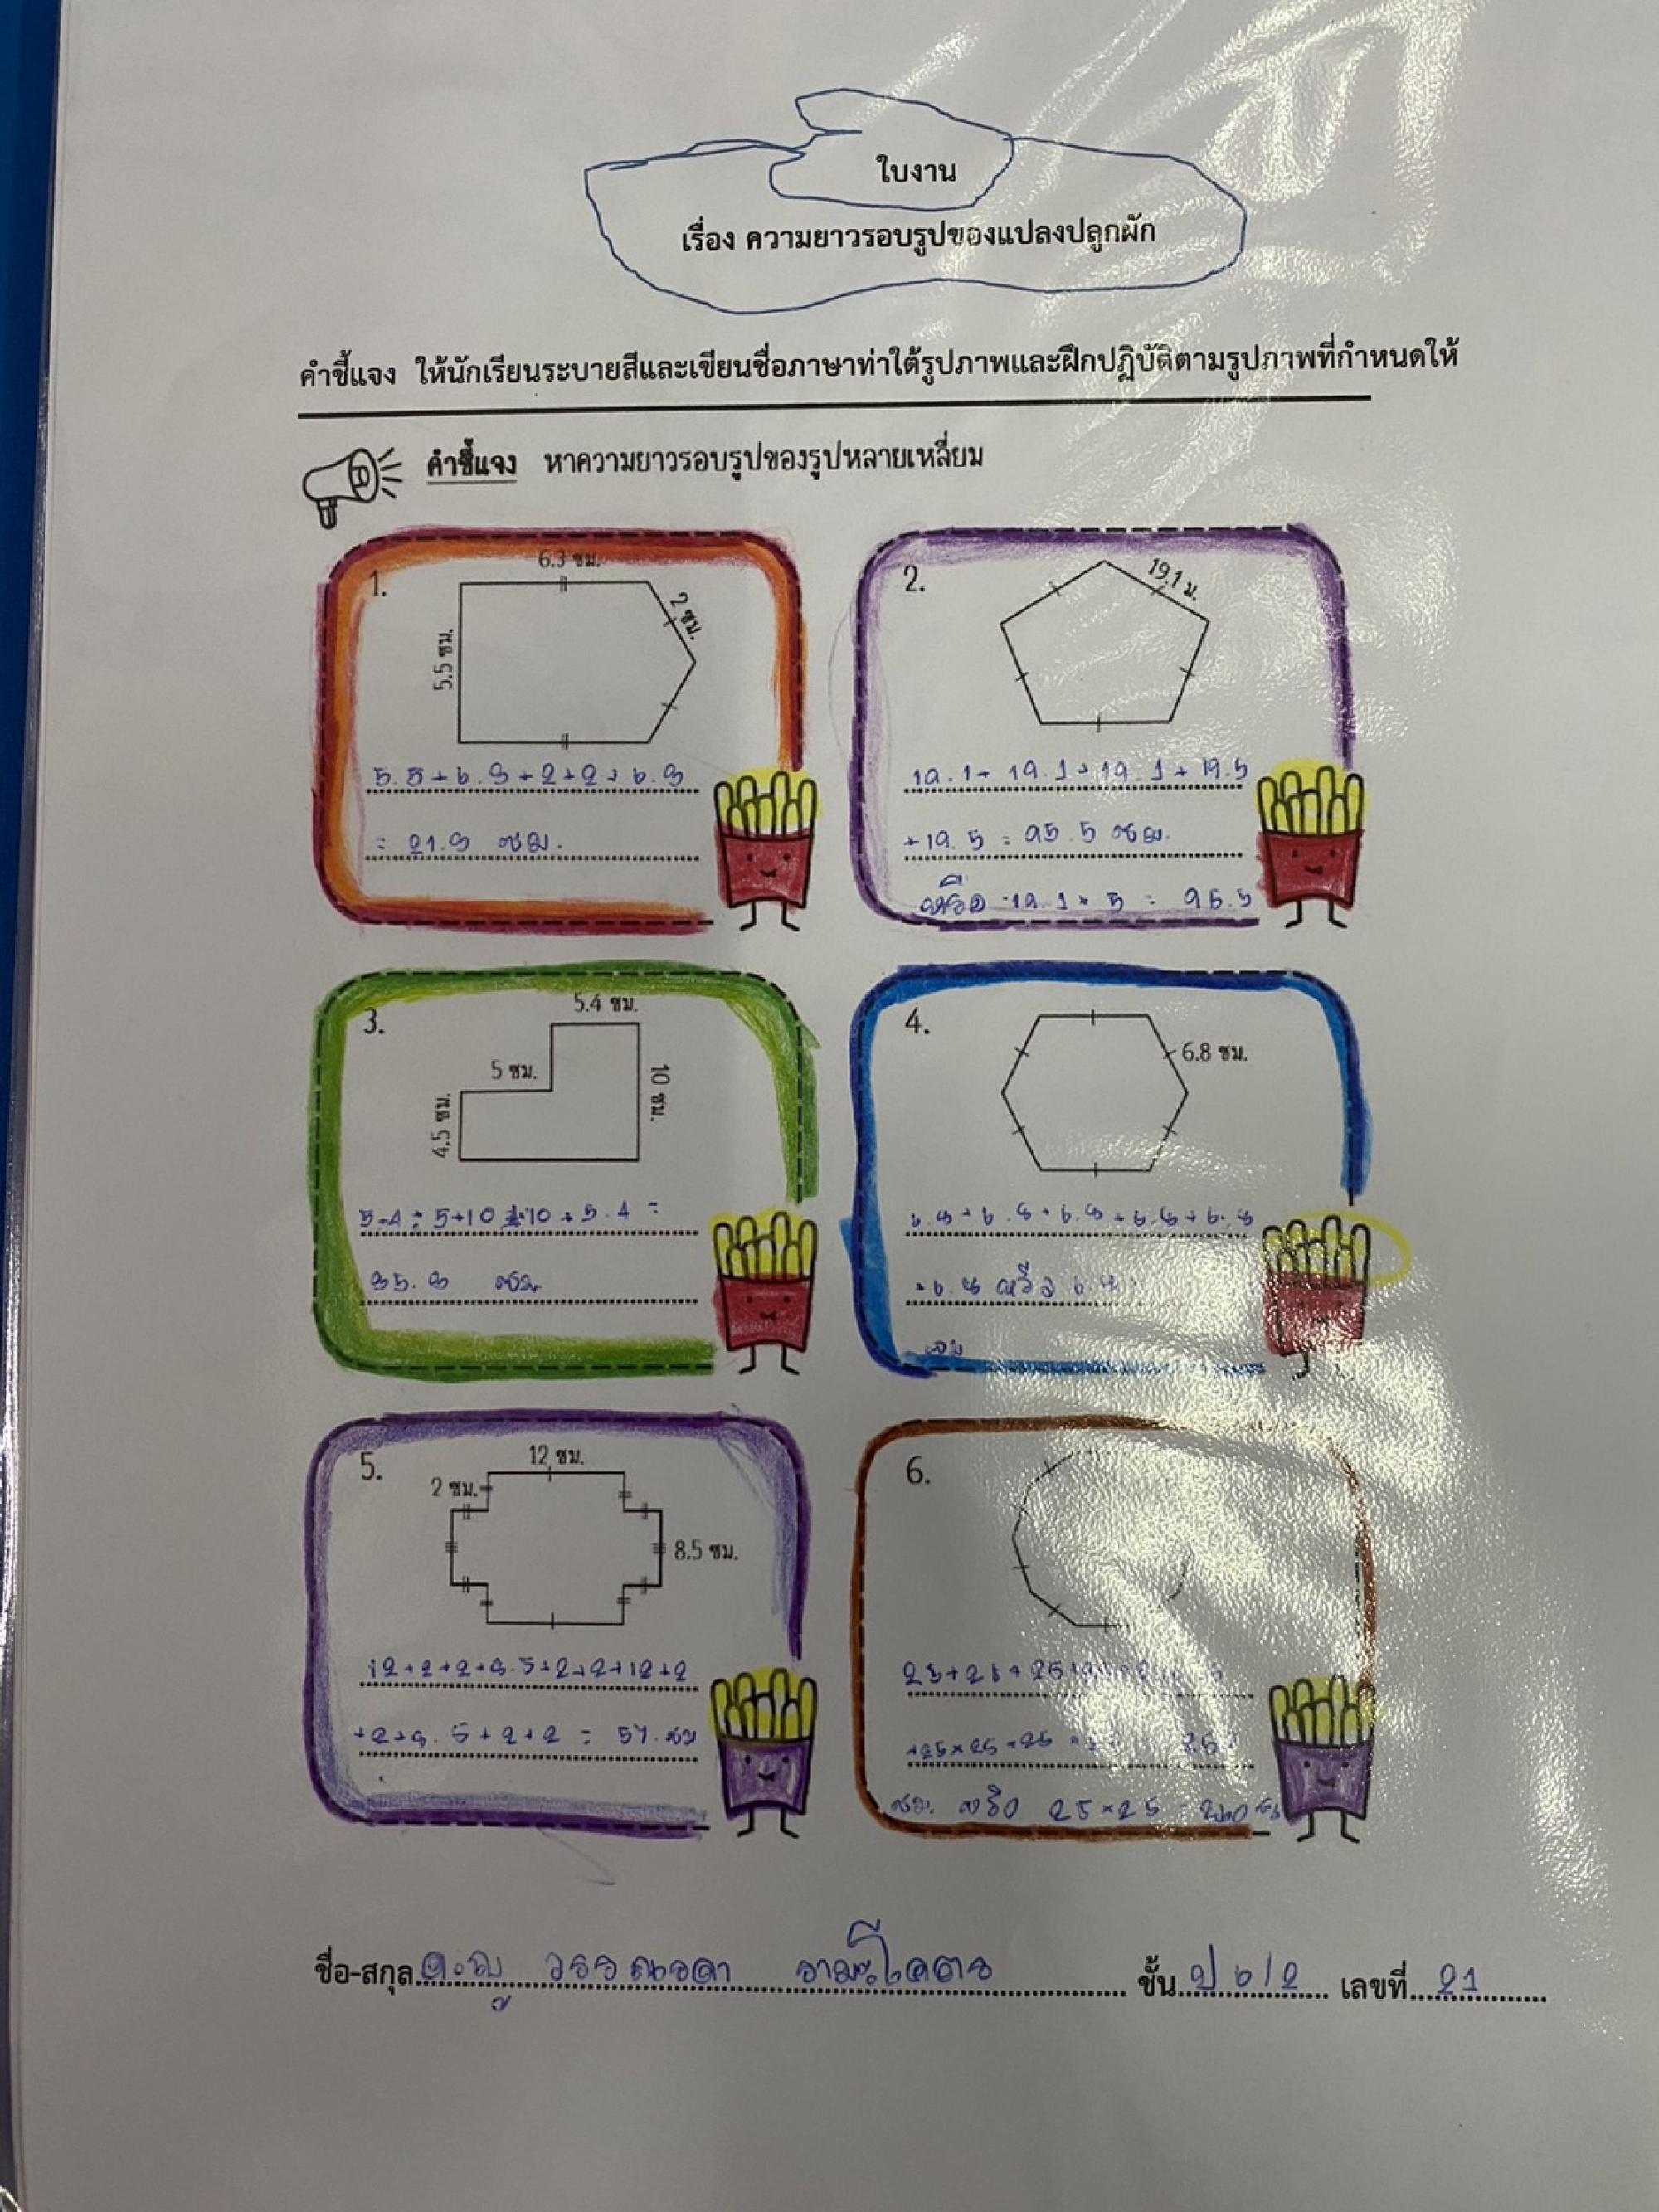 ใบงาน
เรื่อง ความยาวรอบรูปของแปลงปลูกผัก
คำชี้แจง ให้นักเรียนระบายสีและเขียนชื่อภาษาท่าใต้รูปภาพและฝึกปฏิบัติตามรูปภาพที่กำหนดให้
คำชี้แจง หาความยาวรอบรูปของรูปหลายเหลี่ยม
1.
6.3 ซม.
2 ซม.
5.5 ซม.
5.5+6.3+2+2+6.3
= 21.3 ซม.
2.
19.1 ม.
19.1+19.1+19.1+19.5
+19.5 = 95.5 ซม.
หรือ 19.1 × 5 = 95.5
3.
5.4 ซม.
5 ซม.
10 ซม.
4.5 ซม.
5+10 +10+5.4 =
35.8 ซม.
4.
6.8 ซม.
6.8+6.8+6.8+6.8+6.8
+6.8 หรือ
5.
12 ซม.
2 ซม.
8.5 ซม.
12+2+2+8.5+2+2+12+2
+2+8.5+2+2 = 57 ซม
6.
ซม. หรือ 25×25
ชื่อ-สกุล ชั้น ป 6/2 เลขที่ 21